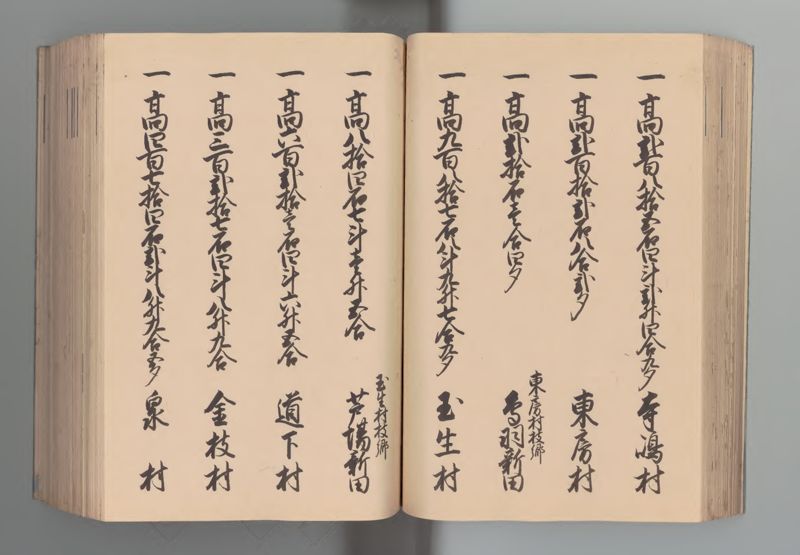 一 高弐百八拾五石四斗弐升四合九夕 寺嶋村
一 高弐百拾弐石八合弐夕 東房村
東房村枝郷
一 高弐拾石壱合四夕 鳥羽新田
一 高九百八拾七石八斗九升七合九夕 玉生村
玉生村枝郷
一 高八拾四石七斗壱升五合 芦場新田
一 高六百弐拾壱石四斗六升五合 道下村
一 高三百弐拾七石四斗八升九合 金枝村
一 高四百七拾四石弐斗八升九合五夕 泉村